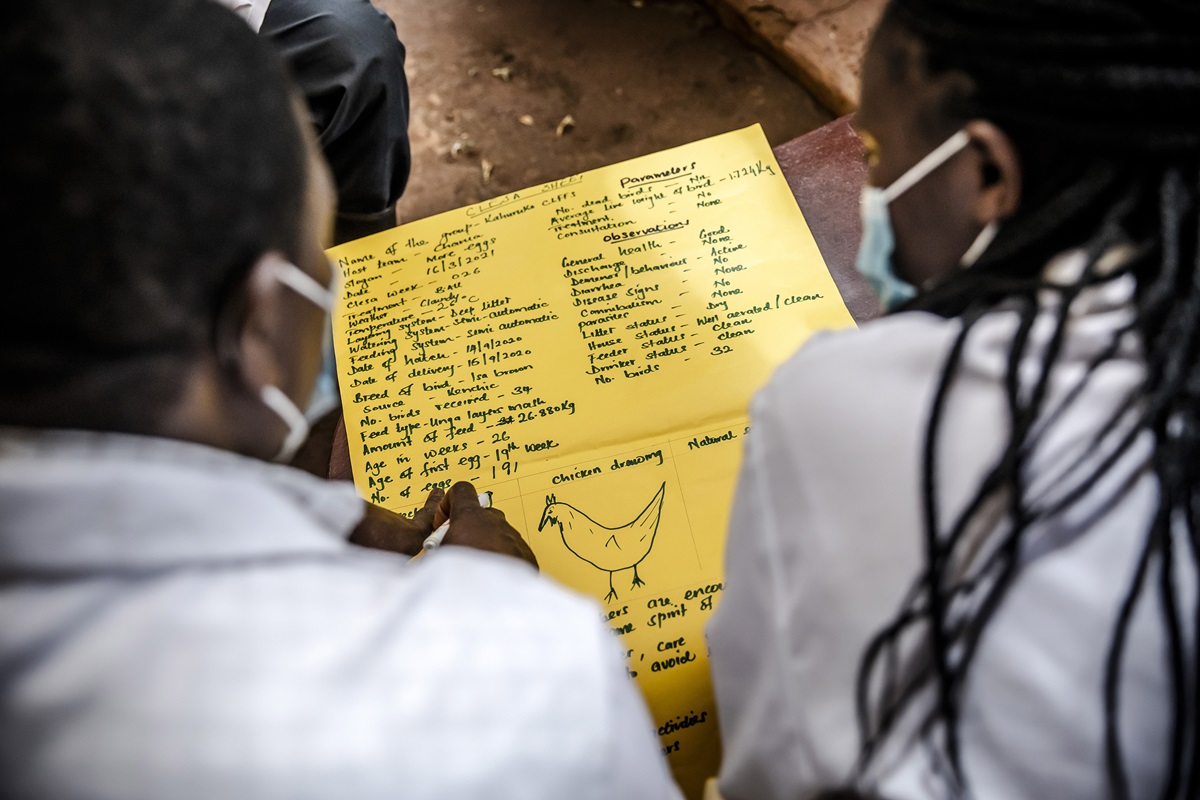 CLESA SHEET
Name of the group - Kahuruko CLFFS
Host team - Chania
Slogan - More eggs
Date - 16/3/2021
Clesa week - 026
Treatment - BAU
Weather - Cloudy
Temperature - 26°C
Laying system - Deep litter
Watering system - Semi-automatic
Feeding system - Semi automatic
Date of hatch - 14/9/2020
Date of delivery - 16/9/2020
Breed of bird - Isa brown
Source - Kenchic
No. birds received - 34
Feed type - Unga layers mash
Amount of feed - 26.880Kg
Age in weeks - 26
Age of first egg - 19th week
No. of eggs - 191
Parameters
No. dead birds - Nil
Average live weight of bird - 1.724Kg
Treatment - No
Consultation - None
Observation
General health - Good
Discharge - None
Demenor/behaviour - Active
Diarrhea - No
Disease signs - None
Cannibalism - No
Parasites - None
Litter status - Dry
House status - Well aerated/clean
Feeder status - Clean
Drinker status - Clean
No. birds - 32
Chicken drawing
Natural
are
spirit of
care
avoid